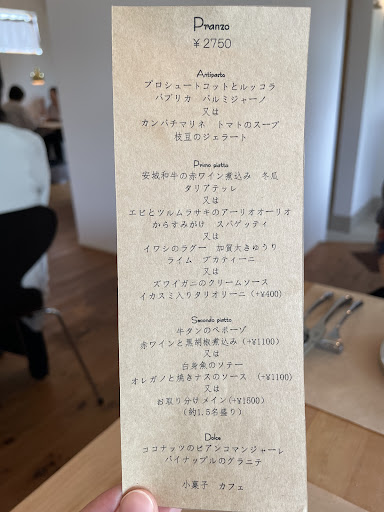 Pranzo
￥2750
Antipasto
プロシュートコットとルッコラ
パプリカ　パルミジャーノ
又は
カンパチマリネ　トマトのスープ
枝豆のジェラート
Primo piatto
安城和牛の赤ワイン煮込み　冬瓜
タリアテッレ
又は
エビとツルムラサキのアーリオオーリオ
からすみがけ　スパゲッティ
又は
イワシのラグー　加賀太きゅうり
ライム　ブカティーニ
又は
ズワイガニのクリームソース
イカスミ入りタリオリーニ（+¥400）
Secondo piatto
牛タンのペポーゾ
赤ワインと黒胡椒煮込み（+¥1100）
又は
白身魚のソテー
オレガノと焼きナスのソース　（+¥1100）
又は
お取り分けメイン（+¥1500）
（約1.5名盛り）
Dolce
ココナッツのビアンコマンジャーレ
パイナップルのグラニテ
小菓子　カフェ